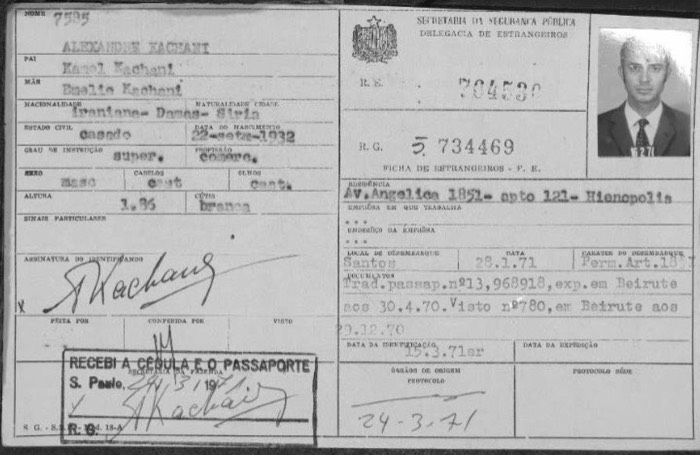 NOME 7595
ALEXANDRE KACHANI
PAI
Kamel Kachani
MÃE
Emelie Kachani
NACIONALIDADE NATURALIDADE CIDADE
iraniana- Damas- Siria
ESTADO CIVIL DATA DO NASCIMENTO
casado 22-setz-1932
GRAU DE INSTRUÇÃO PROFISSÃO
super. comerc.
SEXO CABELOS OLHOS
masc cast cast.
ALTURA CÚTIS
1.86 branca
SINAIS PARTICULARES
ASSINATURA DO IDENTIFICANDO
x AKachani
FEITA POR CONFERIDA POR VISTO
SECRETARIA DA FAZENDA
RECEBI A CÉDULA E O PASSAPORTE
S. Paulo, 24/3/1971
AKachani
R. G.
S. G. - 18-A
SECRETARIA DA SEGURANÇA PÚBLICA
DELEGACIA DE ESTRANGEIROS
R. E. 704530
R. G. 5.734469
FICHA DE ESTRANGEIROS - F. E.
RESIDÊNCIA
Av.Angelica 1851- apto 121- Hienopolis
EMPRÊSA EM QUE TRABALHA
...
ENDERÊÇO DA EMPRÊSA
...
LOCAL DE DESEMBARQUE DATA CARATER DO DESEMBARQUE
Santos 28.1.71 Perm.Art.
DOCUMENTOS
Trad.passap.nº13,968918,exp.em Beirute
aos 30.4.70.Visto nº780,em Beirute aos
29.12.70
DATA DA IDENTIFICAÇÃO DATA DA EXPEDIÇÃO
15.3.71er
ÓRGÃOS DE ORIGEM
PROTOCOLO PROTOCOLO SÉDE
24-3-71